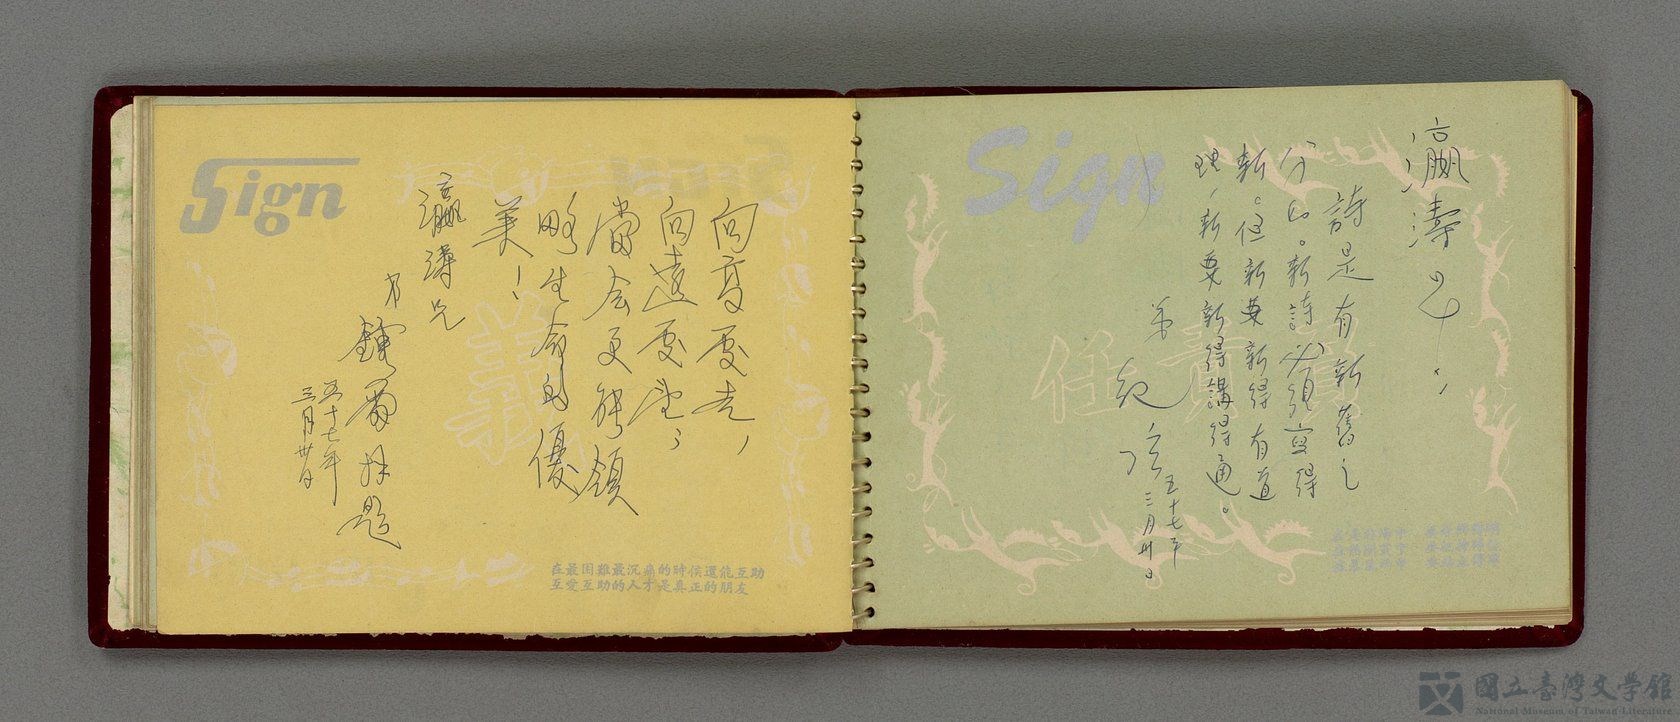 瀛濤兄：
詩是有新舊之
分的。新詩必須寫得
新。但新要新得有道
理，新要新得講得通。
弟 紀弦
五十七年
三月卅日
Sign
責任
向高處去，
向遠處望；
當会更能領
略生命的優
美！
瀛濤兄
弟 鍾雷拜題
五十七年
三月卅日
Sign
義
在最困難最沉痛的時侯還能互助
互愛互助的人才是真正的朋友
國立臺灣文學館
National Museum of Taiwan Literature